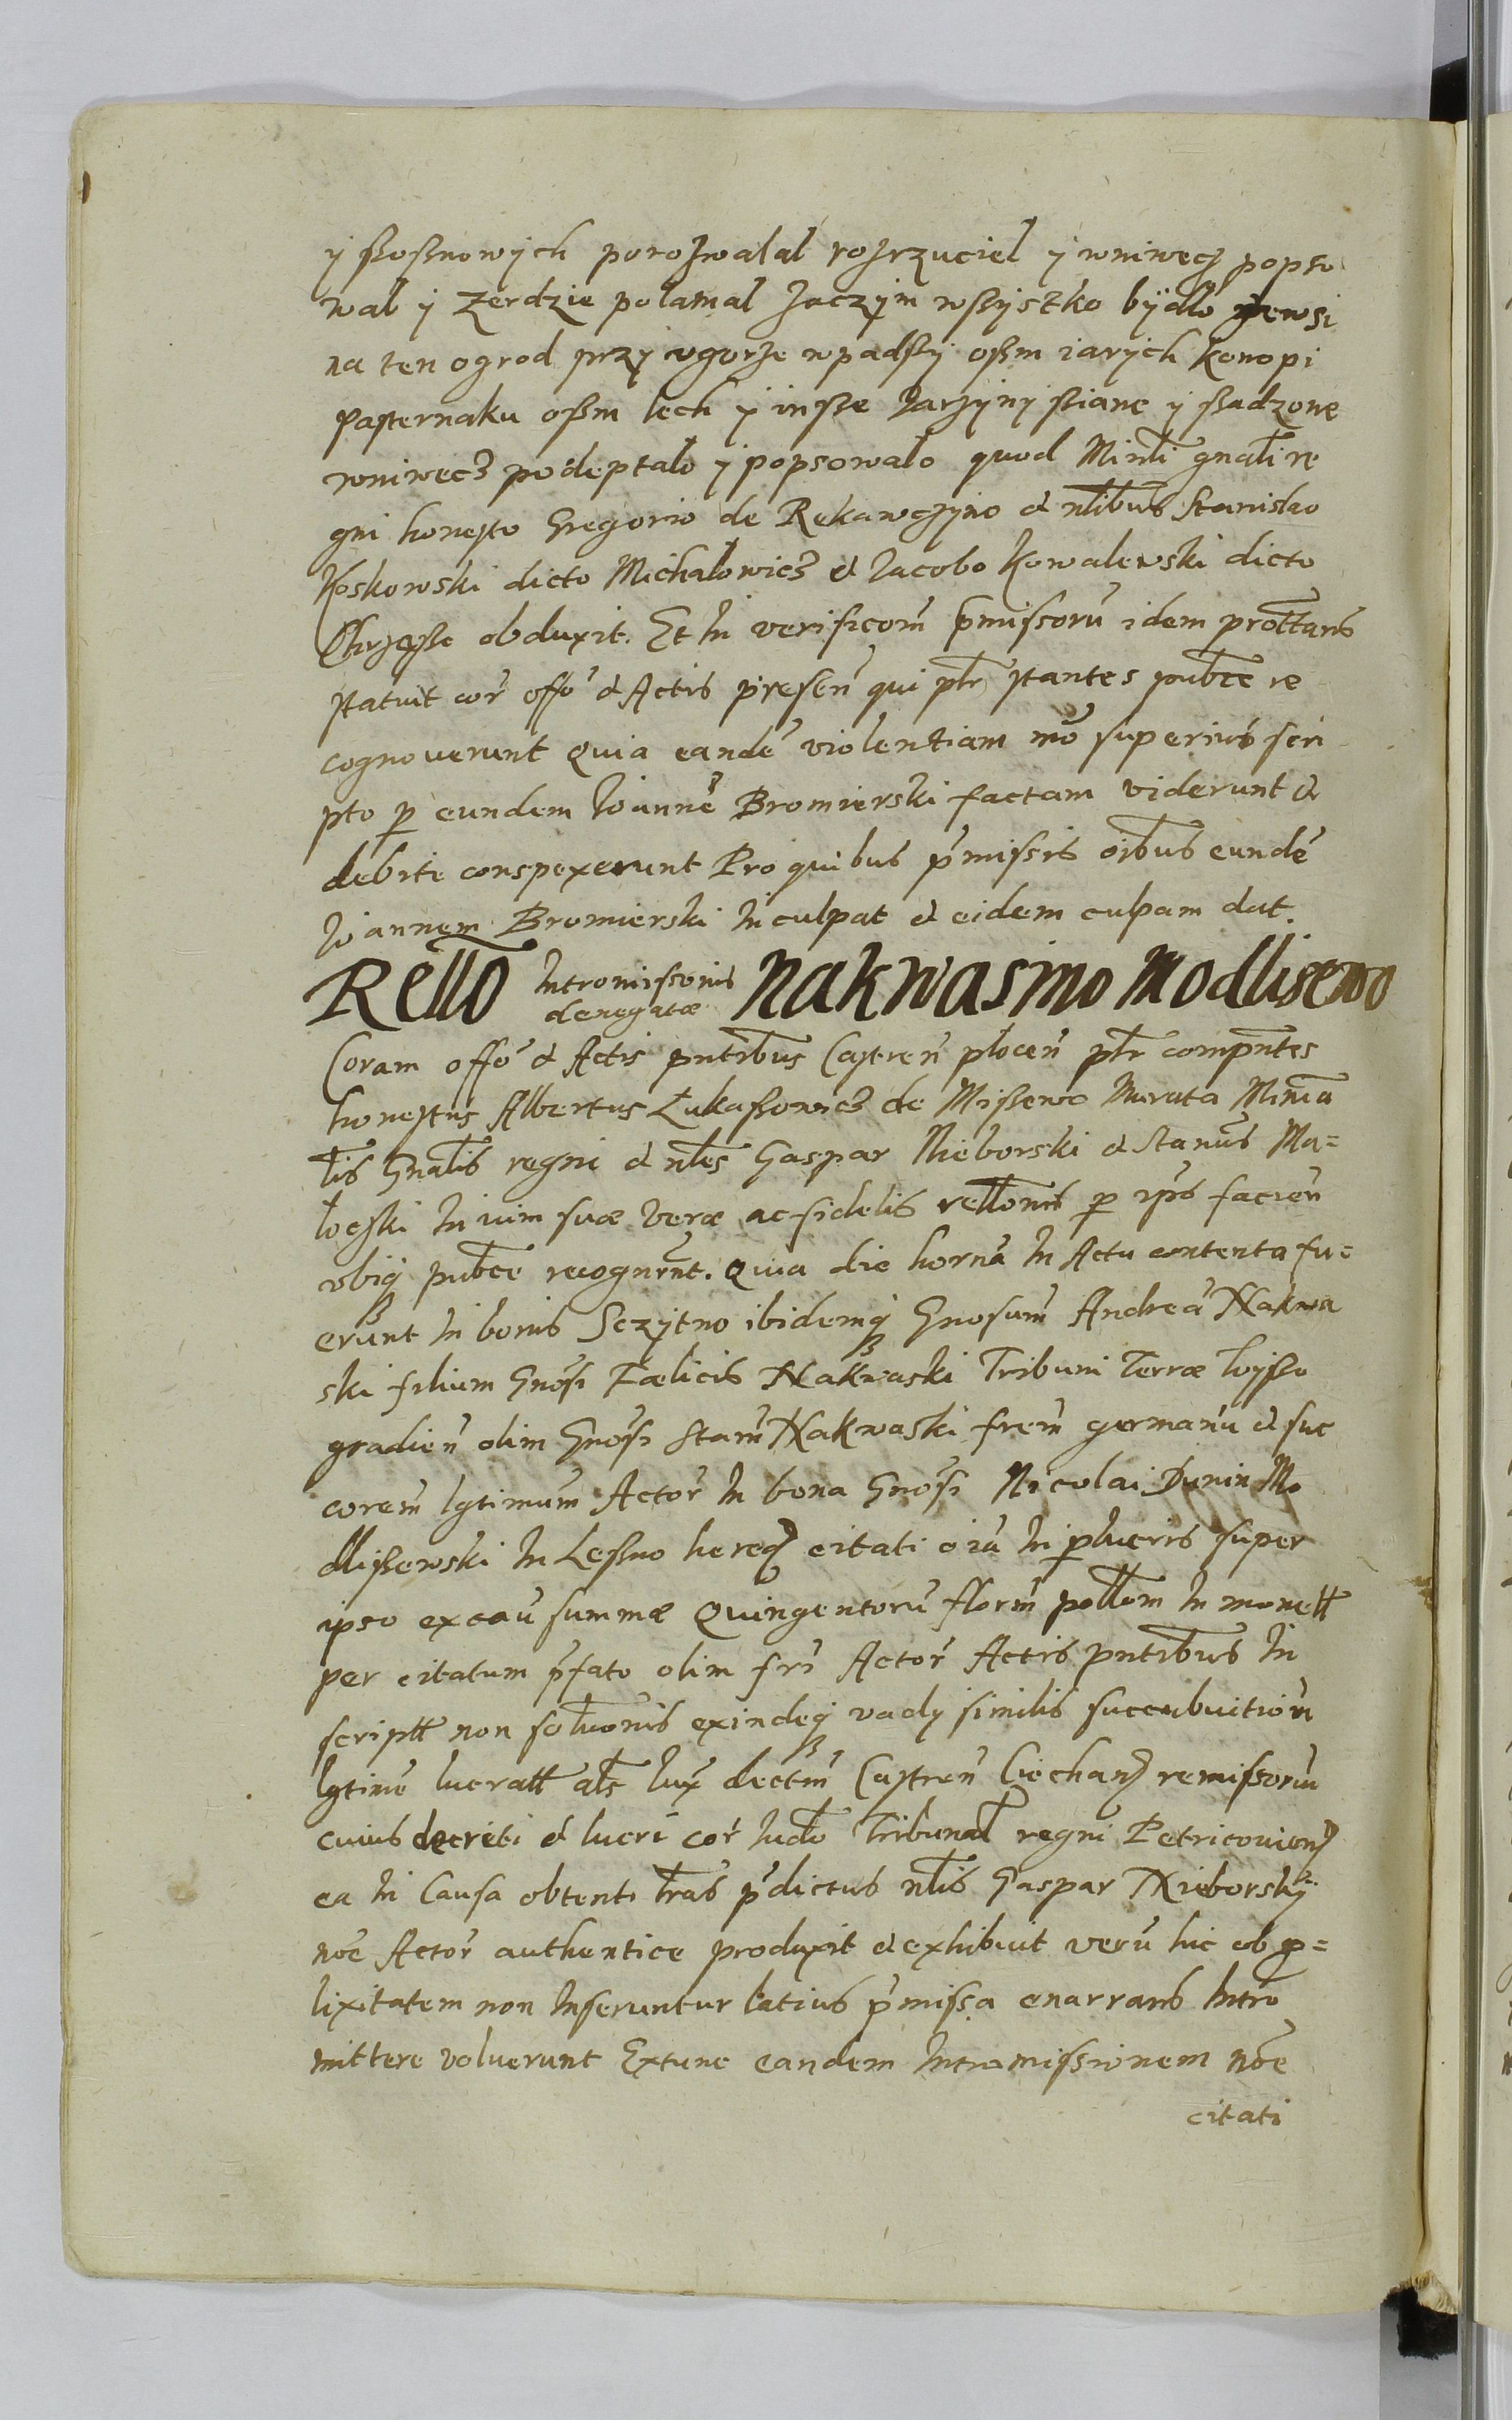 y sosnowych porozwalal rozrzuciel y wniwecz popso
wal y zerdzie polamal zaczym wszystko bydło zewsi
na ten ogrod przy ugorze wpadszy ossm iarych konopi
Pasternaku ossm lech y insze Iarzyny siane y sadzone
wniwecz podeptało y popsowało quod Minrli gnali re
gni honesto Gregorio de Rekawczyno et nlibus Stanislao
Koskowski dicto Michałowicz et Iacobo Kowalewski dicto
obduxit. Et In verificom pmissoru idem prottans
statuit cor offo et Actis presen qui plr stantes pubce re
cognoverunt Quia eande violentiam mo superius scri
pto p eundem Ioanne Bromierski factam viderunt et
debite conspexerunt Pro quibus pmissis oibus eunde
Ioannem Bromierski Inculpat et eidem culpam dat.
Rello Intromissionis denegatæ Nakwasino Modlisewo
Coram offo et Actis pntibus Castren plocen plr compntes
honestus Albertus Łukassowicz de Missewo Murata Minia
lis Gnalis regni et nles Gaspar Nieborski et Stanus Ma=
łoczki In vim suæ Veræ ac fidelis rellonis p ips facien
ubiq pubce recognrnt. Quia die horna In Actu contenta fu=
erunt In bonis Sczytno ibidemq Gnosum Andrea Nakwa
ski filium Gnosi Fælicis Nakwaski Tribuni Terræ Wysso
gradien olim Gnosi Stani Nakwaski frem germanu et suc
corem lgtimum Actor In bona Gnosi Nicolai Dunin Mo
dlisewski In Lessno hered citati oia In plucris super
ipso ex cau summæ Quingentoru florm pollom In monett
per citatum pfato olim fri Actor Actis pntibus In
scriptt non solvonis exindeq vady similis succubuition
lgtime lucratt als Iux dectm Castren Ciechan remissorium
cuius decreti et lucri cor Iudo Tribunal regni Petricovien
ea In Causa obtenti tras pdictus nlis Gaspar Nieborsky
noe Actor authentice produxit et exhibuit veru hic ob p=
lixitatem non Inseruntur latius pmissa enarrans Intro
mittere voluerunt Extunc eandem Intromissionem noe
citati